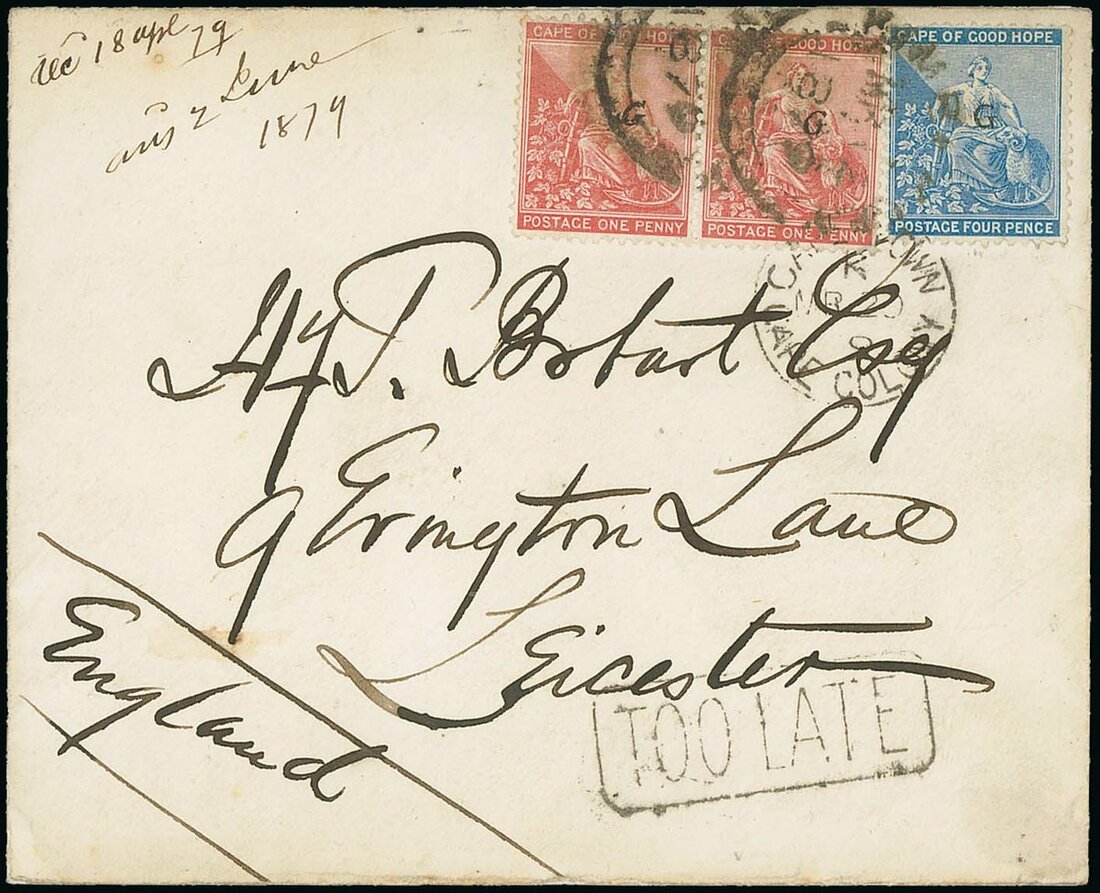 rec 18 apl 79
ans 2 June
1879
CAPE OF GOOD HOPE
G
POSTAGE ONE PENNY
CAPE OF GOOD HOPE
G
POSTAGE ONE PENNY
CAPE OF GOOD HOPE
G
POSTAGE FOUR PENCE
CAPE TOWN
MR
CAPE COLONY
H. T. Bobart Esq
9 Evington Lane
Leicester
England
TOO LATE